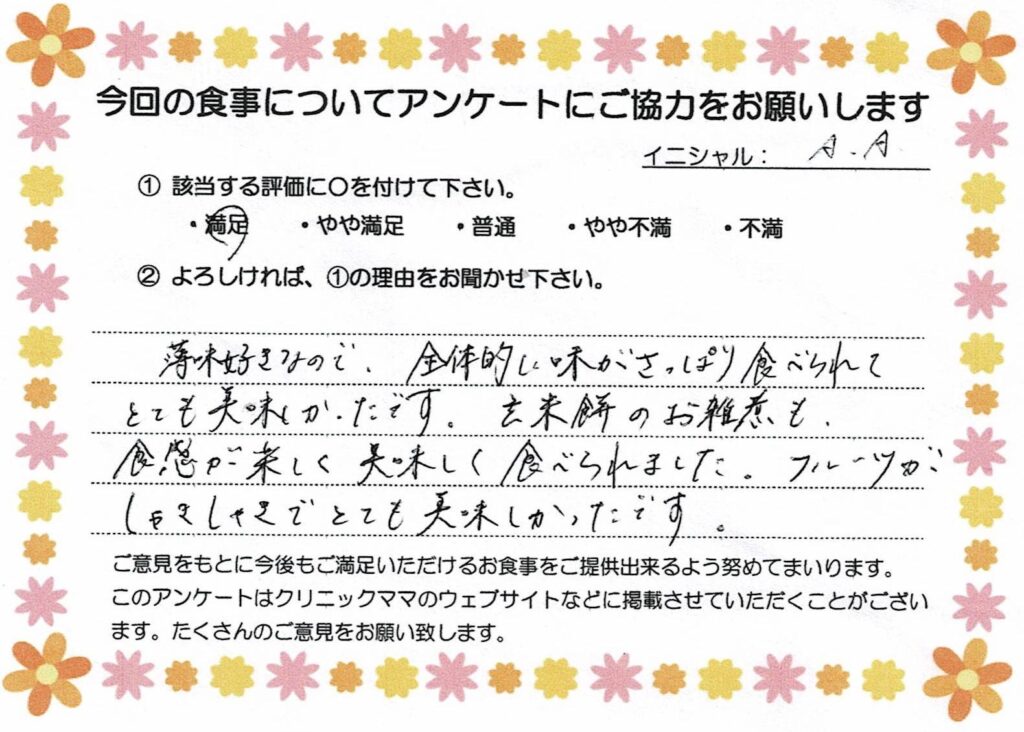 今回の食事についてアンケートにご協力をお願いします
イニシャル： A.A
① 該当する評価に〇を付けて下さい。
・満足 ・やや満足 ・普通 ・やや不満 ・不満
② よろしければ、①の理由をお聞かせ下さい。
薄味好きなので、全体的に味がさっぱり食べられて
とても美味しかったです。玄米餅のお雑煮も、
食感が楽しく美味しく食べられました。フルーツが
しゃきしゃきでとても美味しかったです。
ご意見をもとに今後もご満足いただけるお食事をご提供出来るよう努めてまいります。
このアンケートはクリニックママのウェブサイトなどに掲載させていただくことがござい
ます。たくさんのご意見をお願い致します。